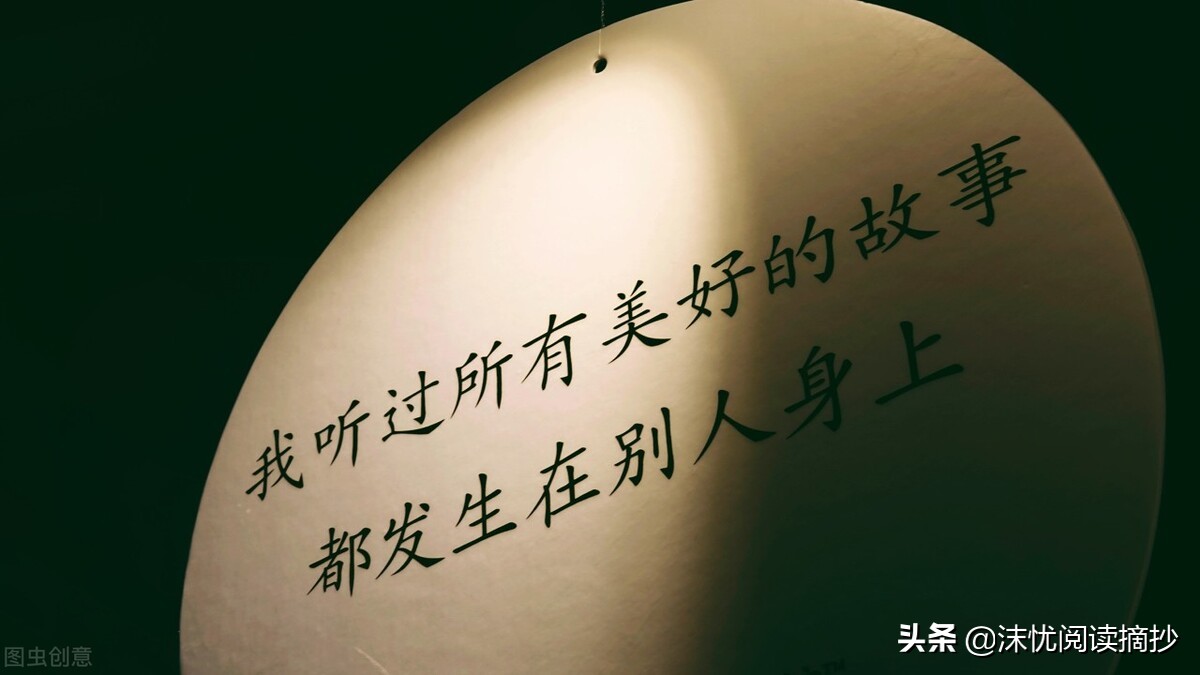 我听过所有美好的故事
都发生在别人身上
图虫创意
头条 @沫忧阅读摘抄